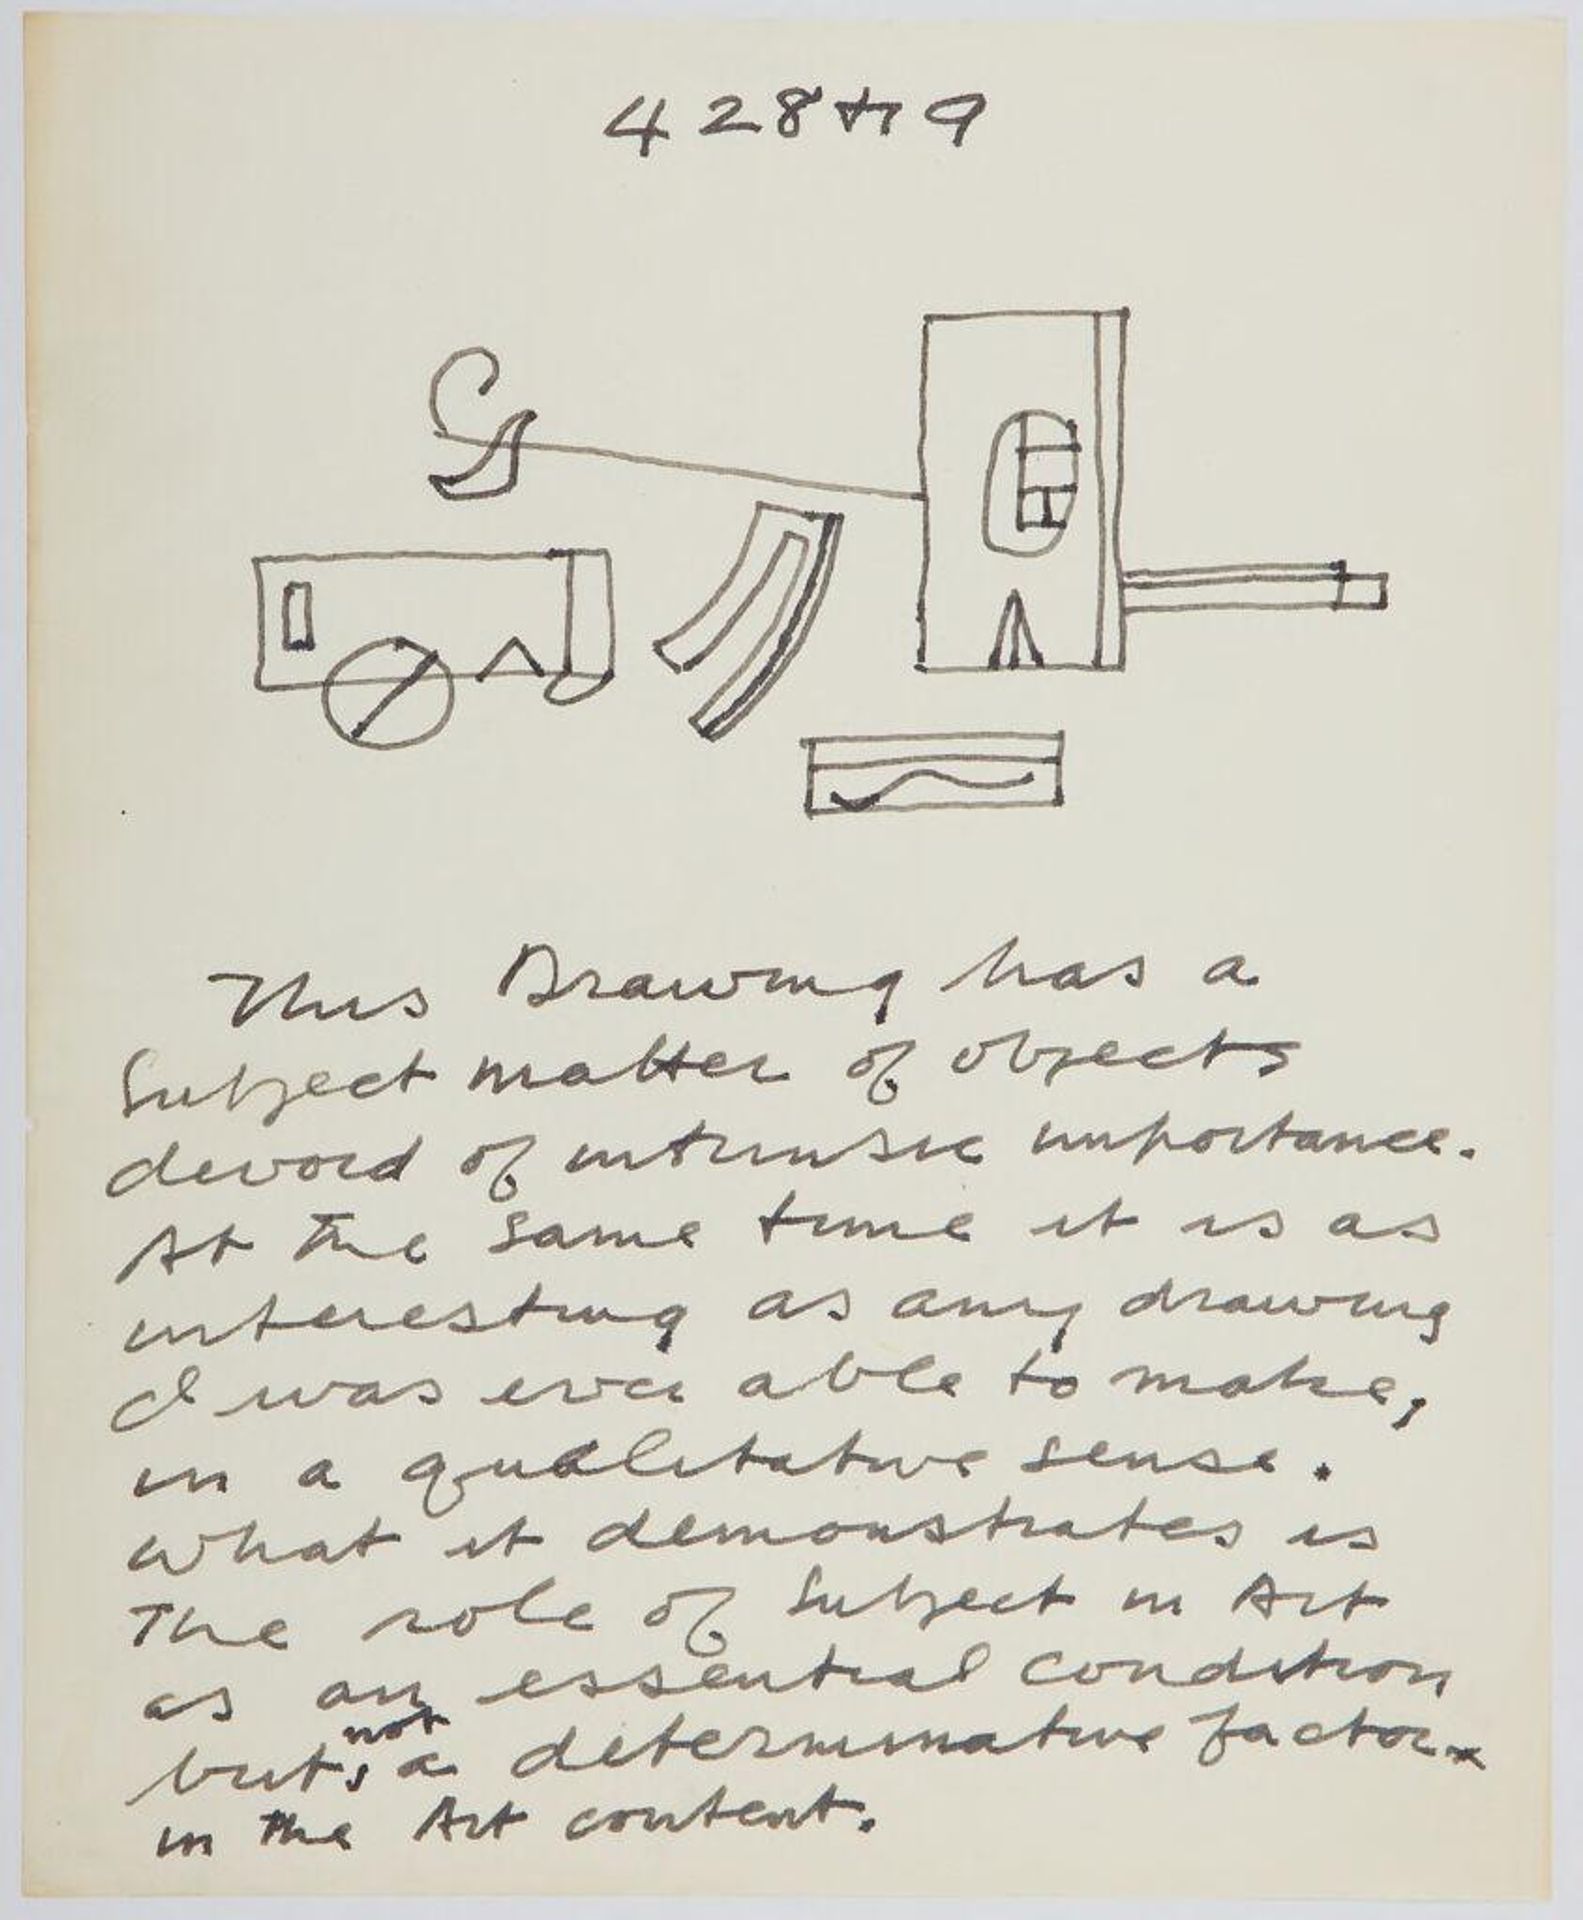 428 + 9
This Drawing has a
Subject matter of objects
devoid of intrinsic importance.
At The same time it is as
interesting as any drawing
I was ever able to make,
in a qualitative sense.
What it demonstrates is
The role of Subject in Art
as an essential condition
but, not a determinative factor
in the Art content.